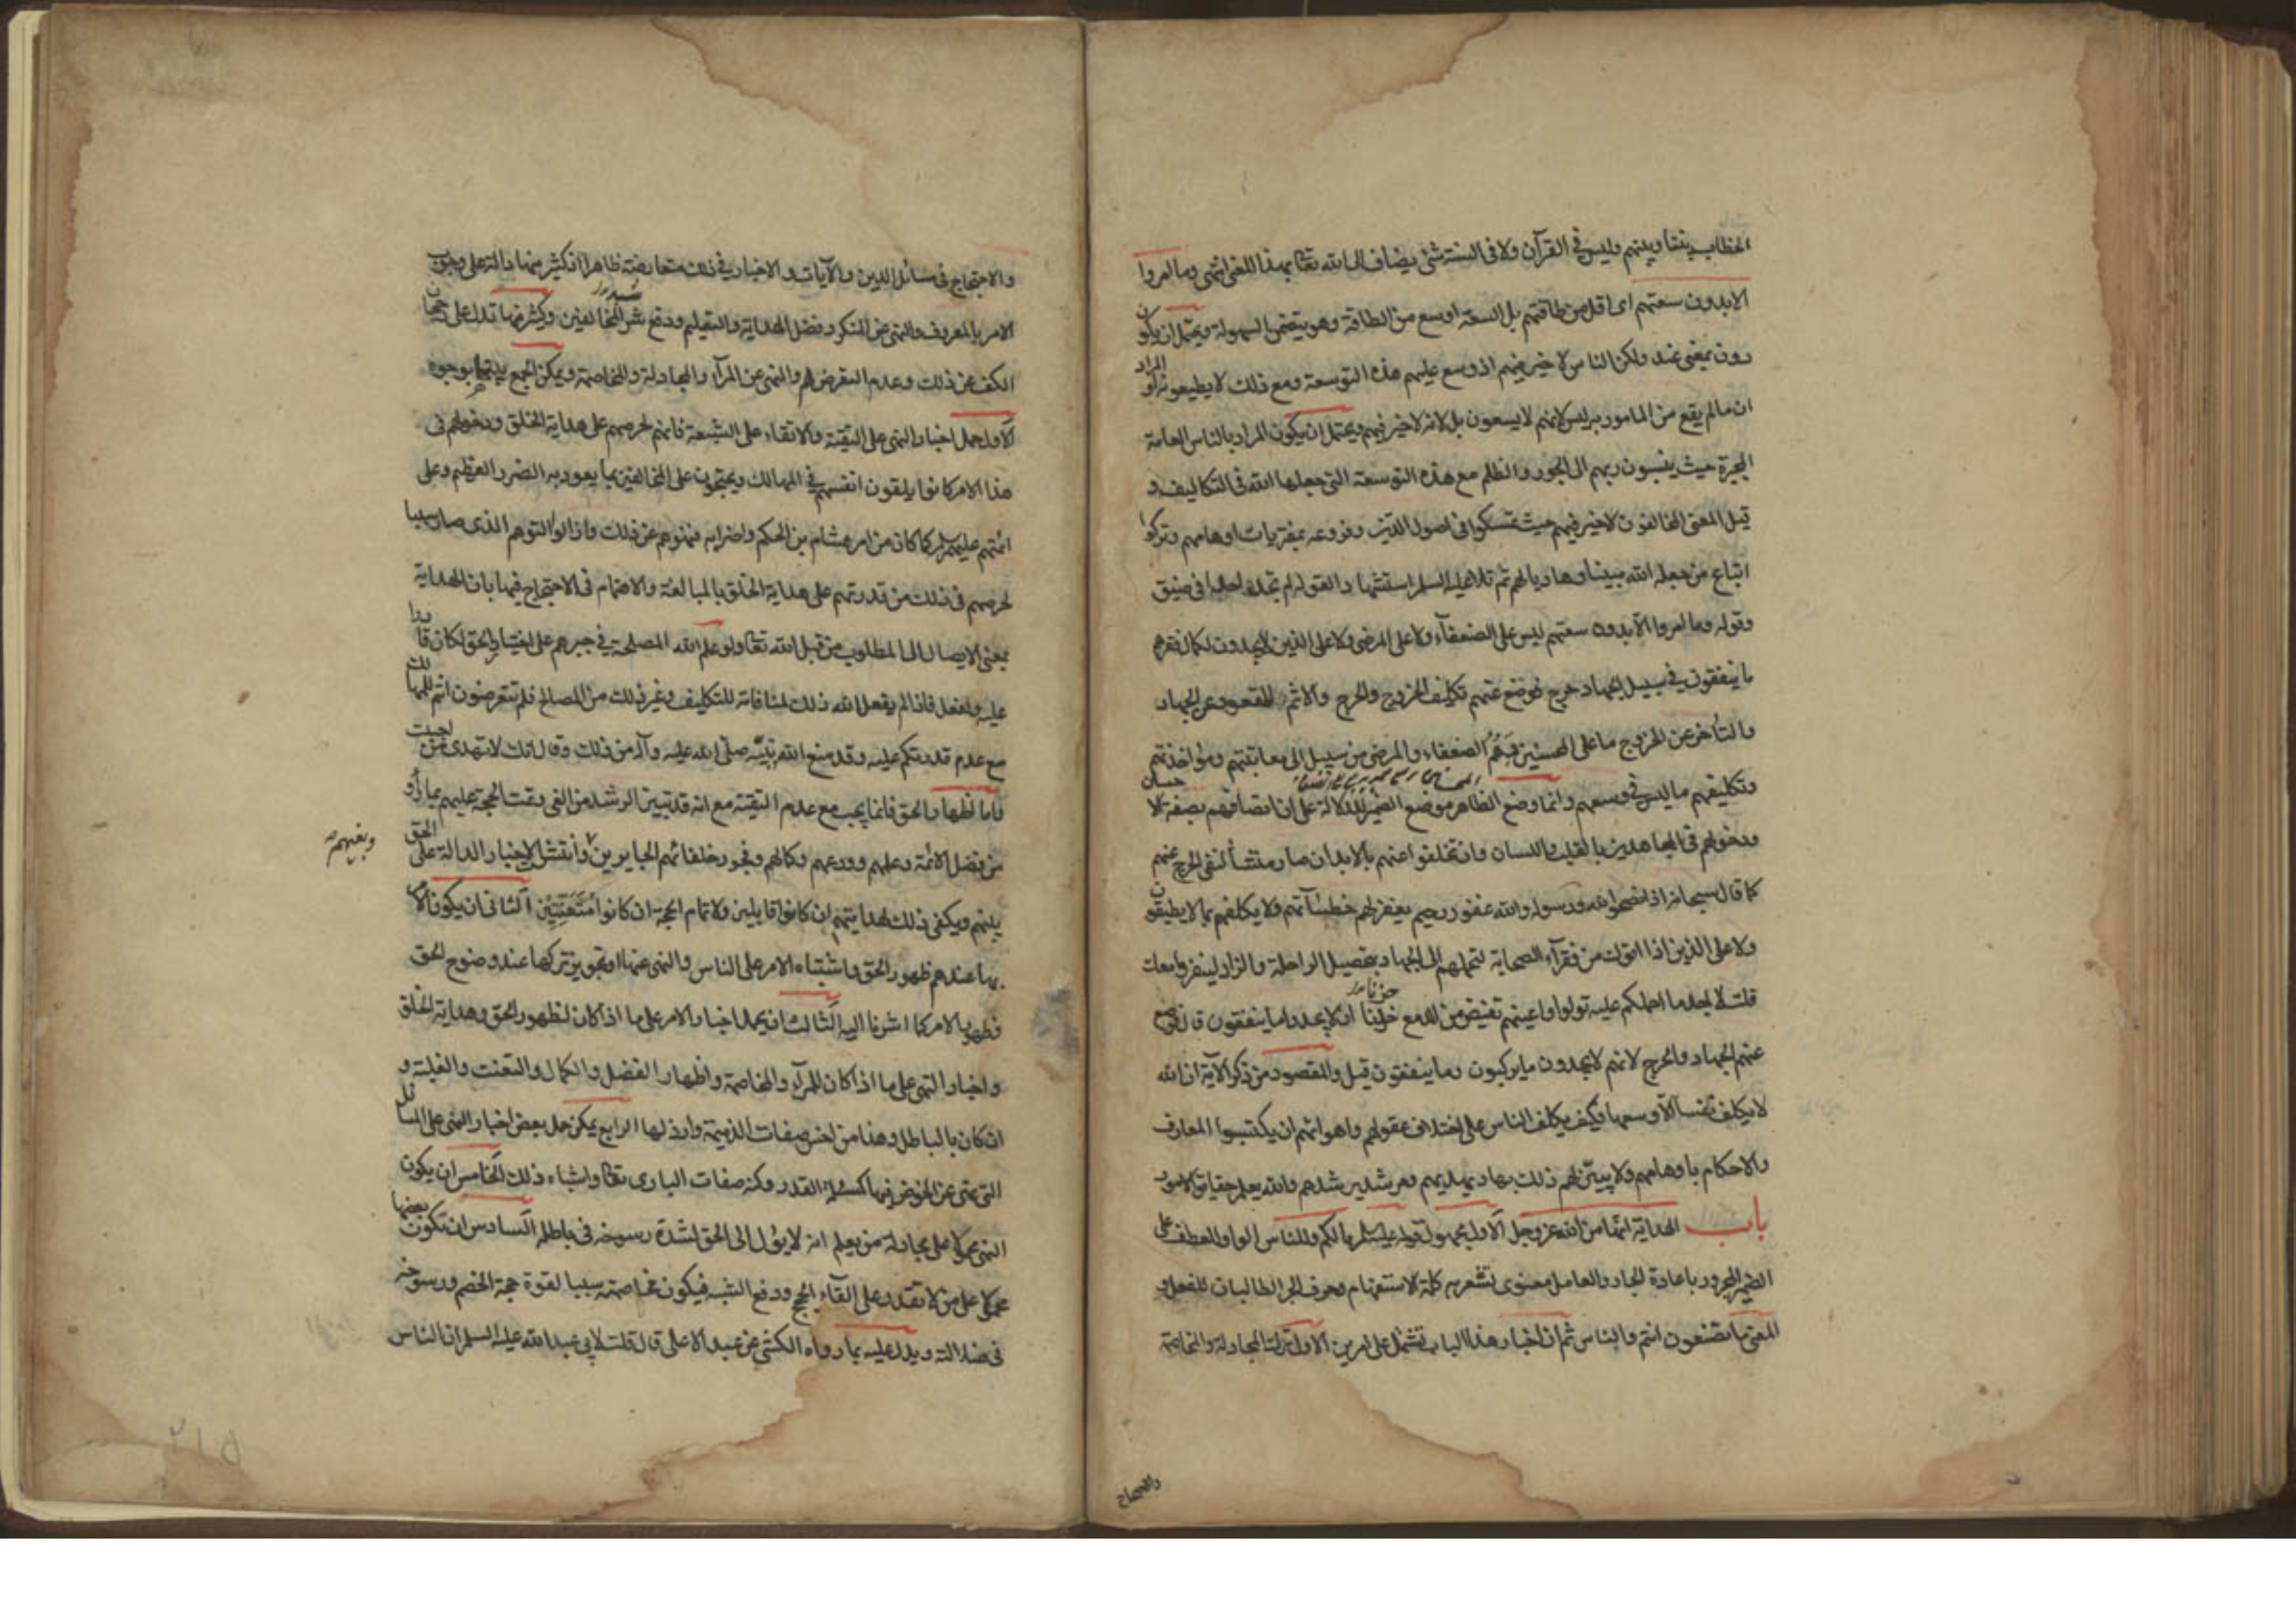 الخطاب يتناولهم وليس في القرآن ولا في السنة شئ يضاف الى الله تعالى بهذا المعنى انتهى وما امروا
الا بدون سعتهم اى اقل من طاقتهم بل السعة اوسع من الطاقة وهو يتضمن السهولة ويحتمل ان يكون
دون بمعنى عند ولكن الناس لا خير فيهم اذ وسع عليهم هذه التوسعة ومع ذلك لا يطيعونه او المراد
ان ما لم يقع من المامور به ليس لانهم لا يسعون بل لانه لا خير فيهم ويحتمل ان يكون المراد بالناس العامة
المجبرة حيث ينسبون ربهم الى الجور والظلم مع هذه التوسعة التى جعلها الله فى التكاليف و
قيل المعنى المخالفون لا خير فيهم حيث تمسكوا فى اصول الدين وفروعه بمفتريات اوهامهم وتركوا
اتباع من جعله الله مبينا وهاديا لهم ثم تلا عليه السلم استشهادا لقوله لم تجد احدا فى ضيق
وقوله وما امروا الا بدون سعتهم ليس على الضعفآء ولا على المرضى ولا على الذين لا يجدون لكمال فقرهم
ما ينفقون فى سبيل الجهاد حرج فوضع عنهم تكليف الخروج والحرج والاثم للقعود عن الجهاد
والتأخر عن الخروج ما على المحسنين وهم الضعفاء والمرضى من سبيل الى معاتبتهم ومؤاخذتهم
وتكليفهم ما ليس فى وسعهم وانما وضع الظاهر موضع الضمير للدلالة على ان اتصافهم بصفة الاحسان
ودخولهم فى المجاهدين بالقلب واللسان وان تخلفوا عنهم بالابدان صار منشأ لنفى الحرج عنهم
كما قال سبحانه اذا نصحوا لله ورسوله والله غفور رحيم يغفر لهم خطيئآتهم ولا يكلفهم بما لا يطيقون
ولا على الذين اذا اتوك من فقرآء الصحابة لتحملهم الى الجهاد بتحصيل الراحلة والزاد لينفروا معك
قلت لا اجد ما احملكم عليه تولوا واعينهم تفيض من الدمع حزنا ان لا يجدوا ما ينفقون قال فوضع
عنهم الجهاد والحرج لانهم لا يجدون ما يركبون وما ينفقون قيل والمقصود من ذكر الآية ان الله
لا يكلف نفسا الّا وسعها فكيف يكلف الناس على اختلاف عقولهم واهوائهم ان يكتسبوا المعارف
والاحكام باوهامهم ولا يبيّن لهم ذلك بهاد يهديهم ومرشد يرشدهم والله يعلم حقايق الامور
باب الهداية انها من الله عز وجل الاول مجهول قوله عليه السلم ما لكم وللناس الواو للعطف على
الضمير المجرور باعادة الجار والعامل معنوى تشعر به كلمة الاستفهام وحرف الجر الطالبان للفعل و
المعنى ما تصنعون انتم والناس ثم ان اخبار هذا الباب تشتمل على امرين الاول ترك المجادلة والمخاصمة
والاحتجاج
والاحتجاج فى مسائل الدين والآيات والاخبار فى ذلك متعارضة ظاهرا اذ كثير منها دالة على وجوب
الامر بالمعروف والنهى عن المنكر وفضل الهداية والتعليم ودفع شبه المخالفين وكثير منها تدل على رجحان
الكف عن ذلك وعدم التعرض لهم والنهى عن المرآء والمجادلة والمخاصمة ويمكن الجمع بينها بوجوه
الاول حمل اخبار النهى على التقية والاتقاء على الشيعة فانهم لحرصهم على هداية الخلق ودخولهم فى
هذا الامر كانوا يلقون انفسهم فى المهالك ويحتجون على المخالفين بما يعود به الضرر العظيم وعلى
ائمتهم عليهم السلم كما كان من امر هشام بن الحكم واضرابه فنهوهم عن ذلك وازالوا التوهم الذى صار سببا
لحرصهم فى ذلك من قدرتهم على هداية الخلق بالمبالغة والاهتمام فى الاحتجاج فيها بان الهداية
بمعنى الايصال الى المطلوب من قبل الله تعالى ولو علم الله المصلحة فى جبرهم على اختيار الحق لكان قادرا
عليه ولفعل فاذا لم يفعل الله ذلك لمنافاته للتكليف وغير ذلك من المصالح فلم تتعرضون انتم للمهالك
مع عدم قدرتكم عليه وقد منع الله نبيّه صلّى الله عليه وآله من ذلك وقال انك لا تهدى من احببت
فاما اظهار الحق فانما يجب مع عدم التقية مع انه قد تبين الرشد من الغى وتمت الحجة عليهم بما رأو
من فضل الائمة وعلمهم وورعهم وكمالهم وفجور خلفائهم الجايرين وبغيهم وانتشر الاخبار الدالة على الحق
بينهم ويكفى ذلك لهدايتهم ان كانوا قابلين ولاتمام الحجة ان كانوا مُتَعَنّتين الثانى ان يكون الامر
بها عند عدم ظهور الحق واشتباه الامر على الناس والنهى عنها او تجويز تركها عند وضوح الحق
وظهور الامر كما اشرنا اليه الثالث ان يحمل اخبار الامر على ما اذا كان لظهور الحق وهداية الخلق
واخبار النهى على ما اذا كان للمرآء والمخاصمة واظهار الفضل والكمال والتعنت والغلبة و
ان كان بالباطل وهذا من اخس صفات الذميمة وارذلها الرابع يمكن حمل بعض اخبار النهى على المسائل
التى نهى عن الخوض فيها كمسئلة القدر وكنه صفات البارى تعالى واشباه ذلك الخامس ان يكون
النهى محمولا على مجادلة من يعلم انه لا يؤل الى الحق لشدة رسوخه فى باطله السادس ان تكون بعضها
محمولا على من لا يقدر على القآء الحجج ودفع الشبه فيكون مخاصمته سببا لقوة حجة الخصم ورسوخه
فى ضلالته ويدل عليه بما رواه الكشى عن عبد الاعلى قال قلت لابى عبد الله عليه السلم ان الناس
٢١٥